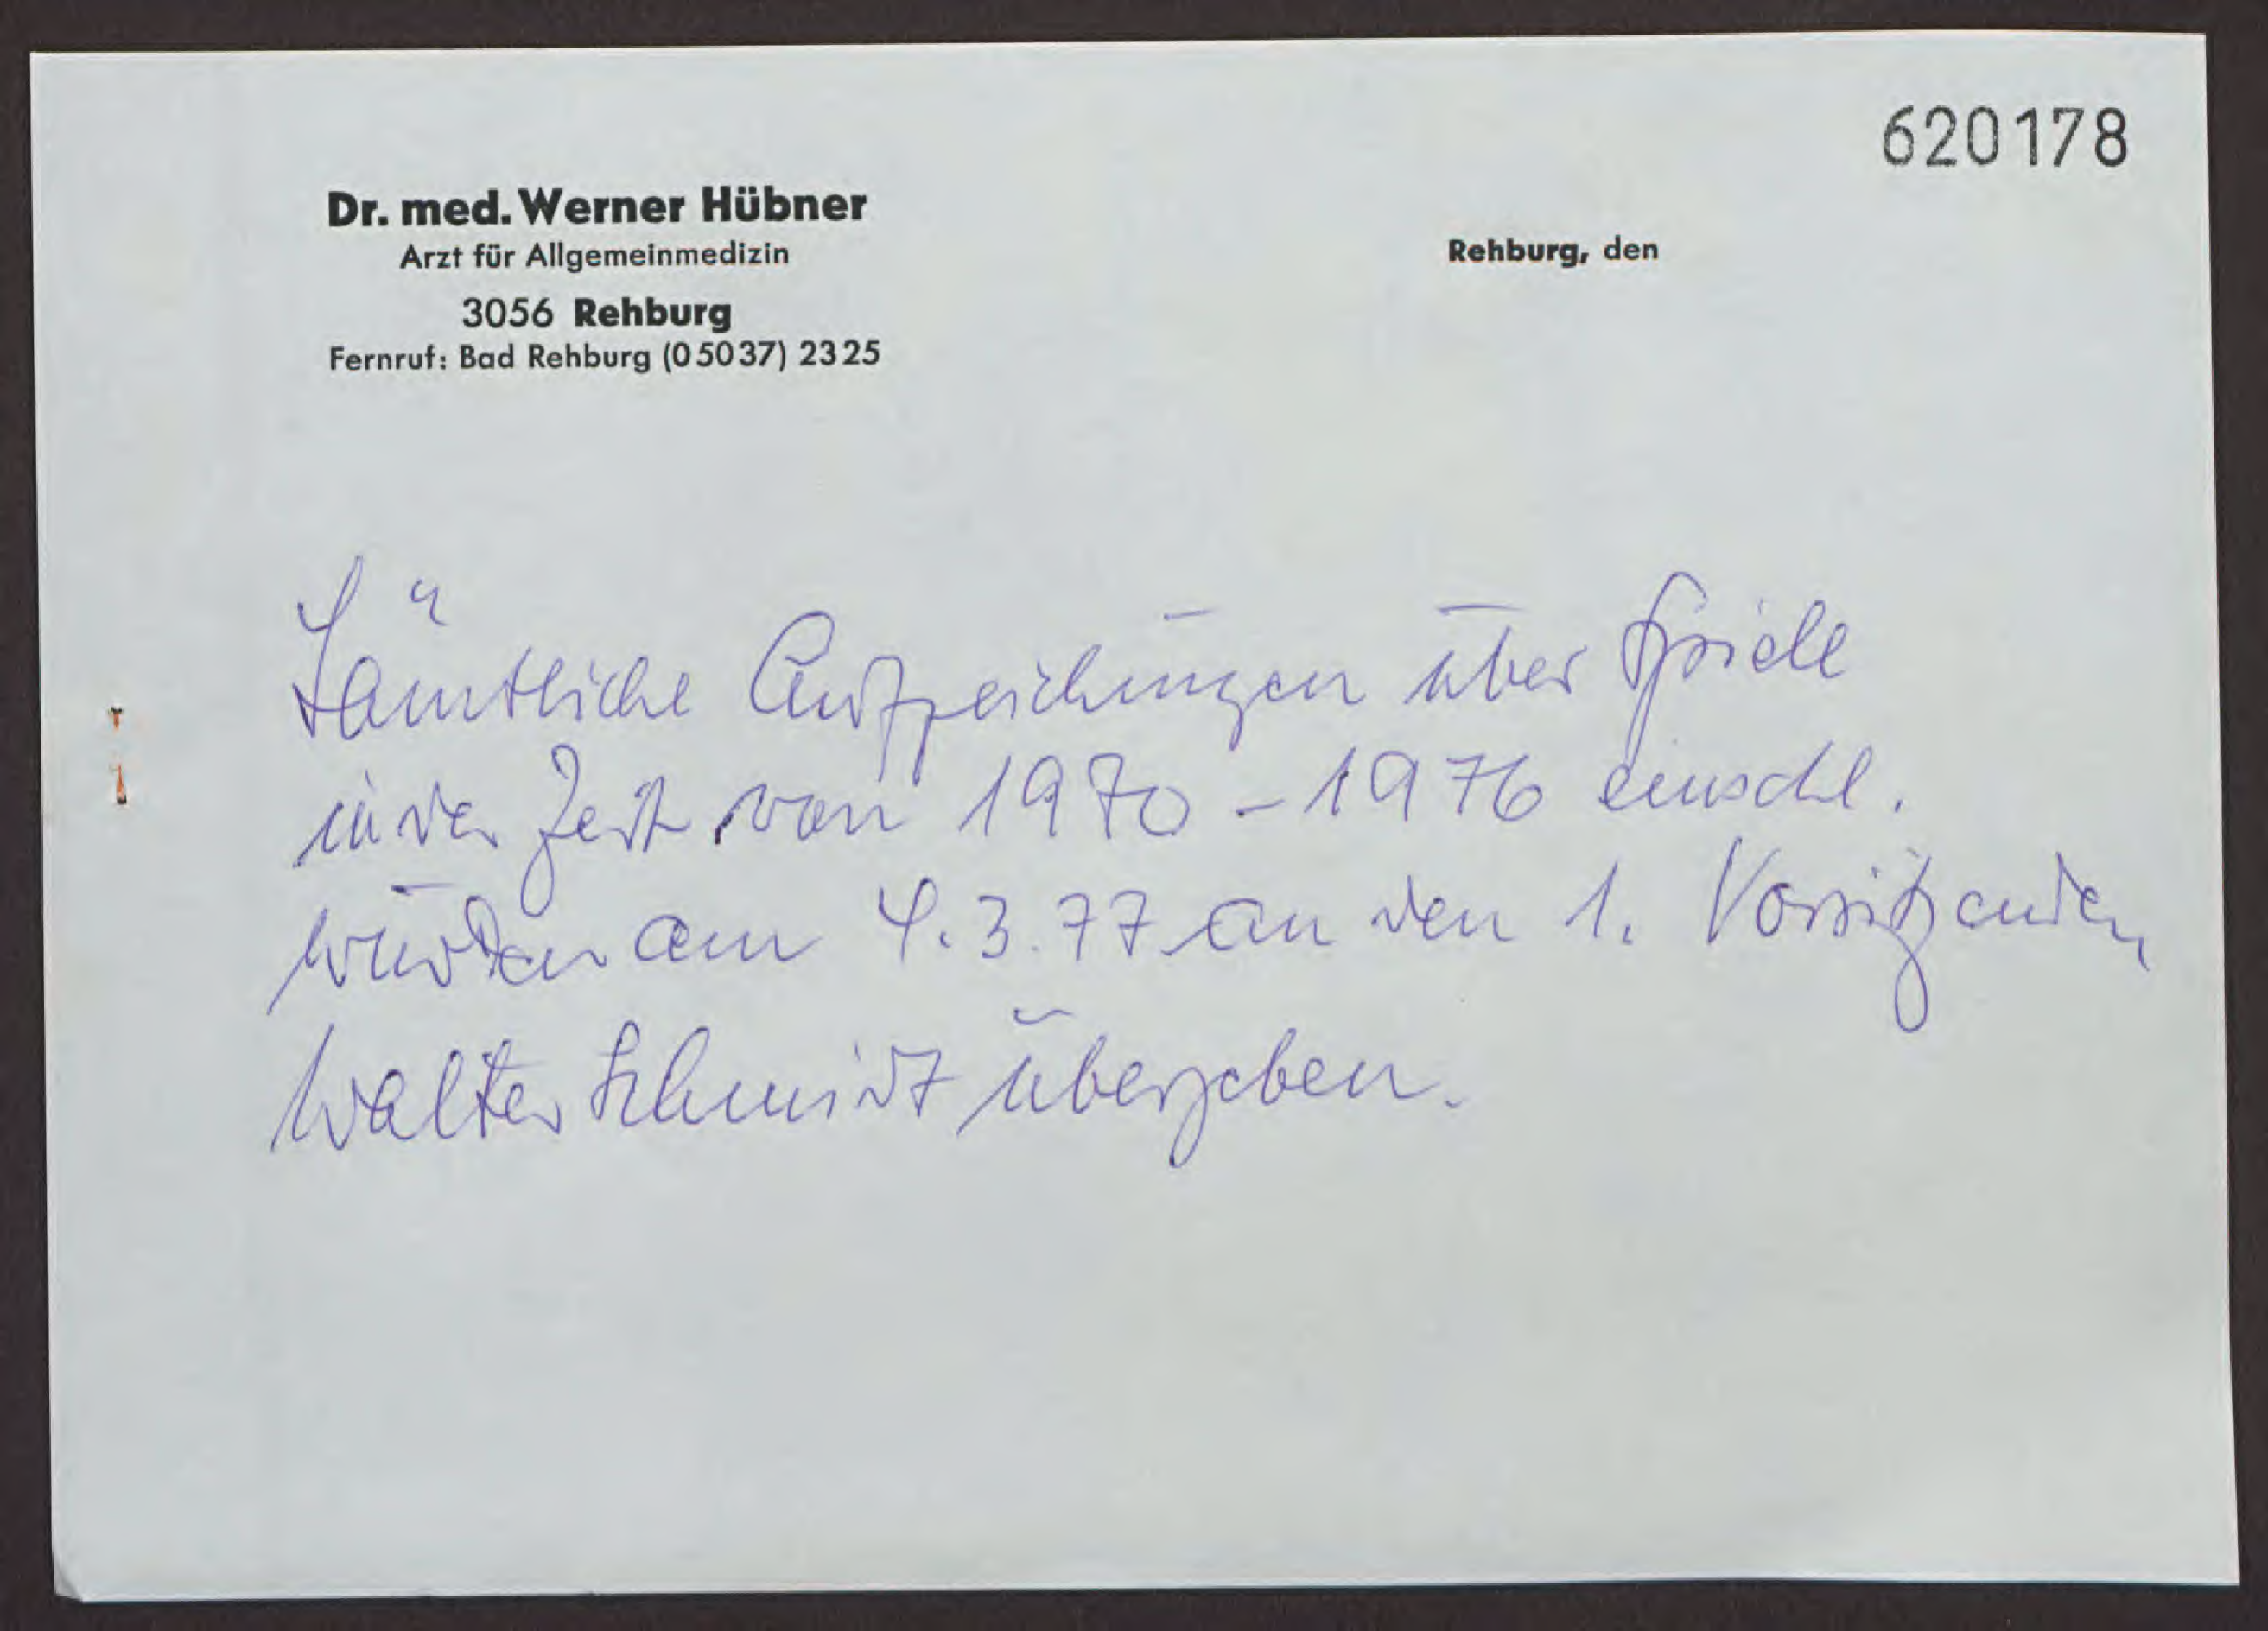 620178
Dr. med. Werner Hübner
Arzt für Allgemeinmedizin
3056 Rehburg
Fernruf: Bad Rehburg (05037) 2325
Rehburg, den
Sämtliche Aufzeichungen über Spiele
in der Zeit von 1970 - 1976 einschl.
wurden am 4.3.77 an den 1. Vorsitzenden,
Walter Schmidt übergeben.